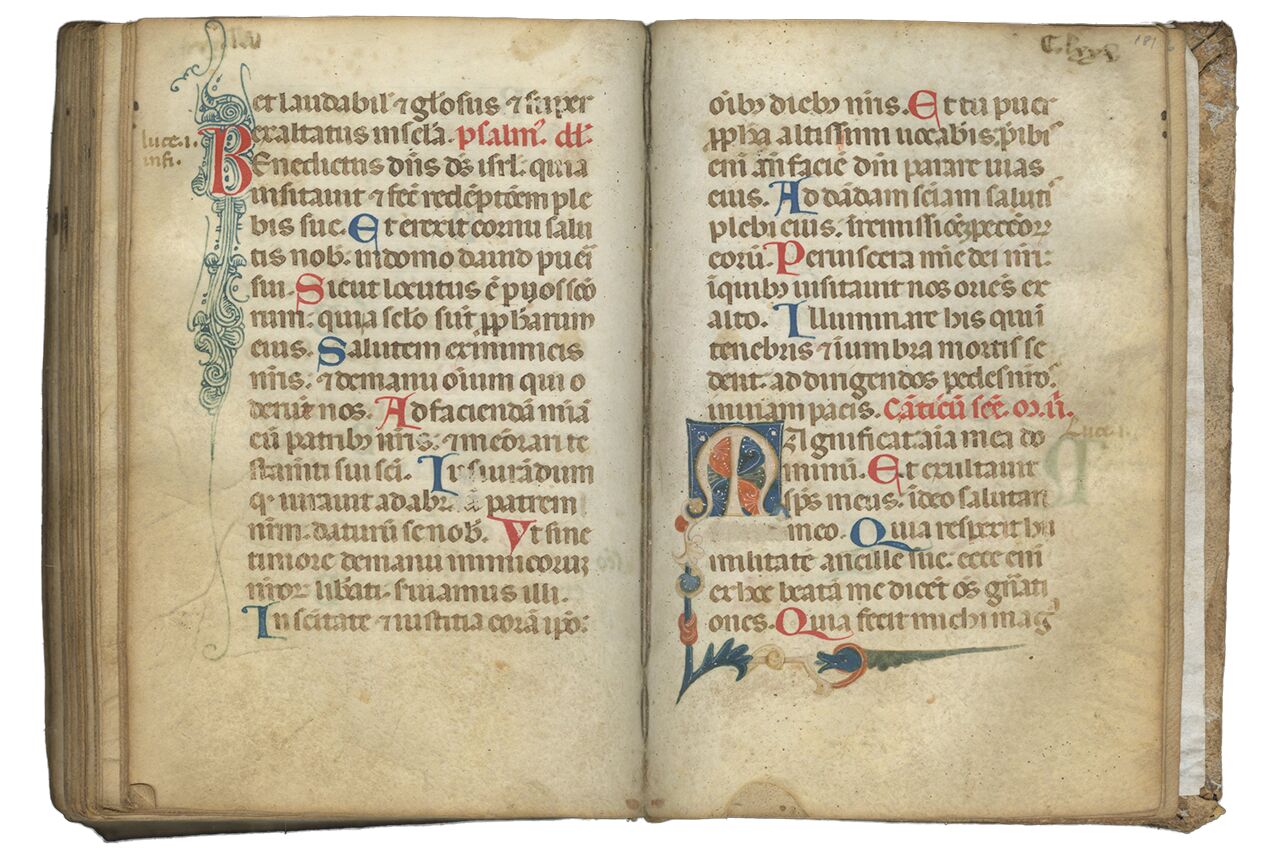 luce. 1.
et laudabil' ⁊ gl̃osus ⁊ super
exaltatus in scl̃a. psalm̃.
BEnedictus dñs ds̃ isrl̃. quia
uisitauit ⁊ fec̃ redẽptõem ple
bis sue. Et erexit cornu salu
tis nob̃. in domo dauid pueri
sui. Sicut locutus ẽ p̱ os sc̃o
rum. quia sclo sũt ꝓph̃arum
eius. Salutem ex inimicis
nr̃is. ⁊ de manu oĩum qui o
derũt nos. Ad faciendã mĩam
cũ patrib; nr̃is. ⁊ memorari te
stamẽti sui sc̃i. Iusiurãdum
q̃ iurauit ad abr̃a patrem
nr̃m. daturũ se nob̃. Vt sine
timore de manu inimicorum
nr̃or̃ libẽati. seruiamus illi.
In sc̃itate ⁊ iustitia corã ip̃o.
C.lxxx
181
oĩib; dieb; nr̃is. Et tu puer
ꝓph̃a altissimi uocab̃is. p̃ibi
eni an̄ faciẽ dñi parare uias
eius. Ad dãdam sc̃iam saluti'
plebi eius. ĩ remissiõẽ peccõr
eorũ. Per uiscera mĩe dei nr̃i.
ĩ quib; uisitauit nos oriẽs ex
alto. Illuminare his qui ĩ
tenebris ⁊ ĩ umbra mortis se
dent. ad dirigendos pedes nr̃o
in uiam pacis. Cãticũ sc̃e. m.
Luce. 1
MAgnificat aĩa mea do
minũ. Et exultauit
sp̃s meus. ĩ deo salutari
meo. Quia respexit hu
militatẽ ancille sue. ecce eni
ex hoc beatã me dicẽt oẽs gñati
ones. Quia fecit michi mag